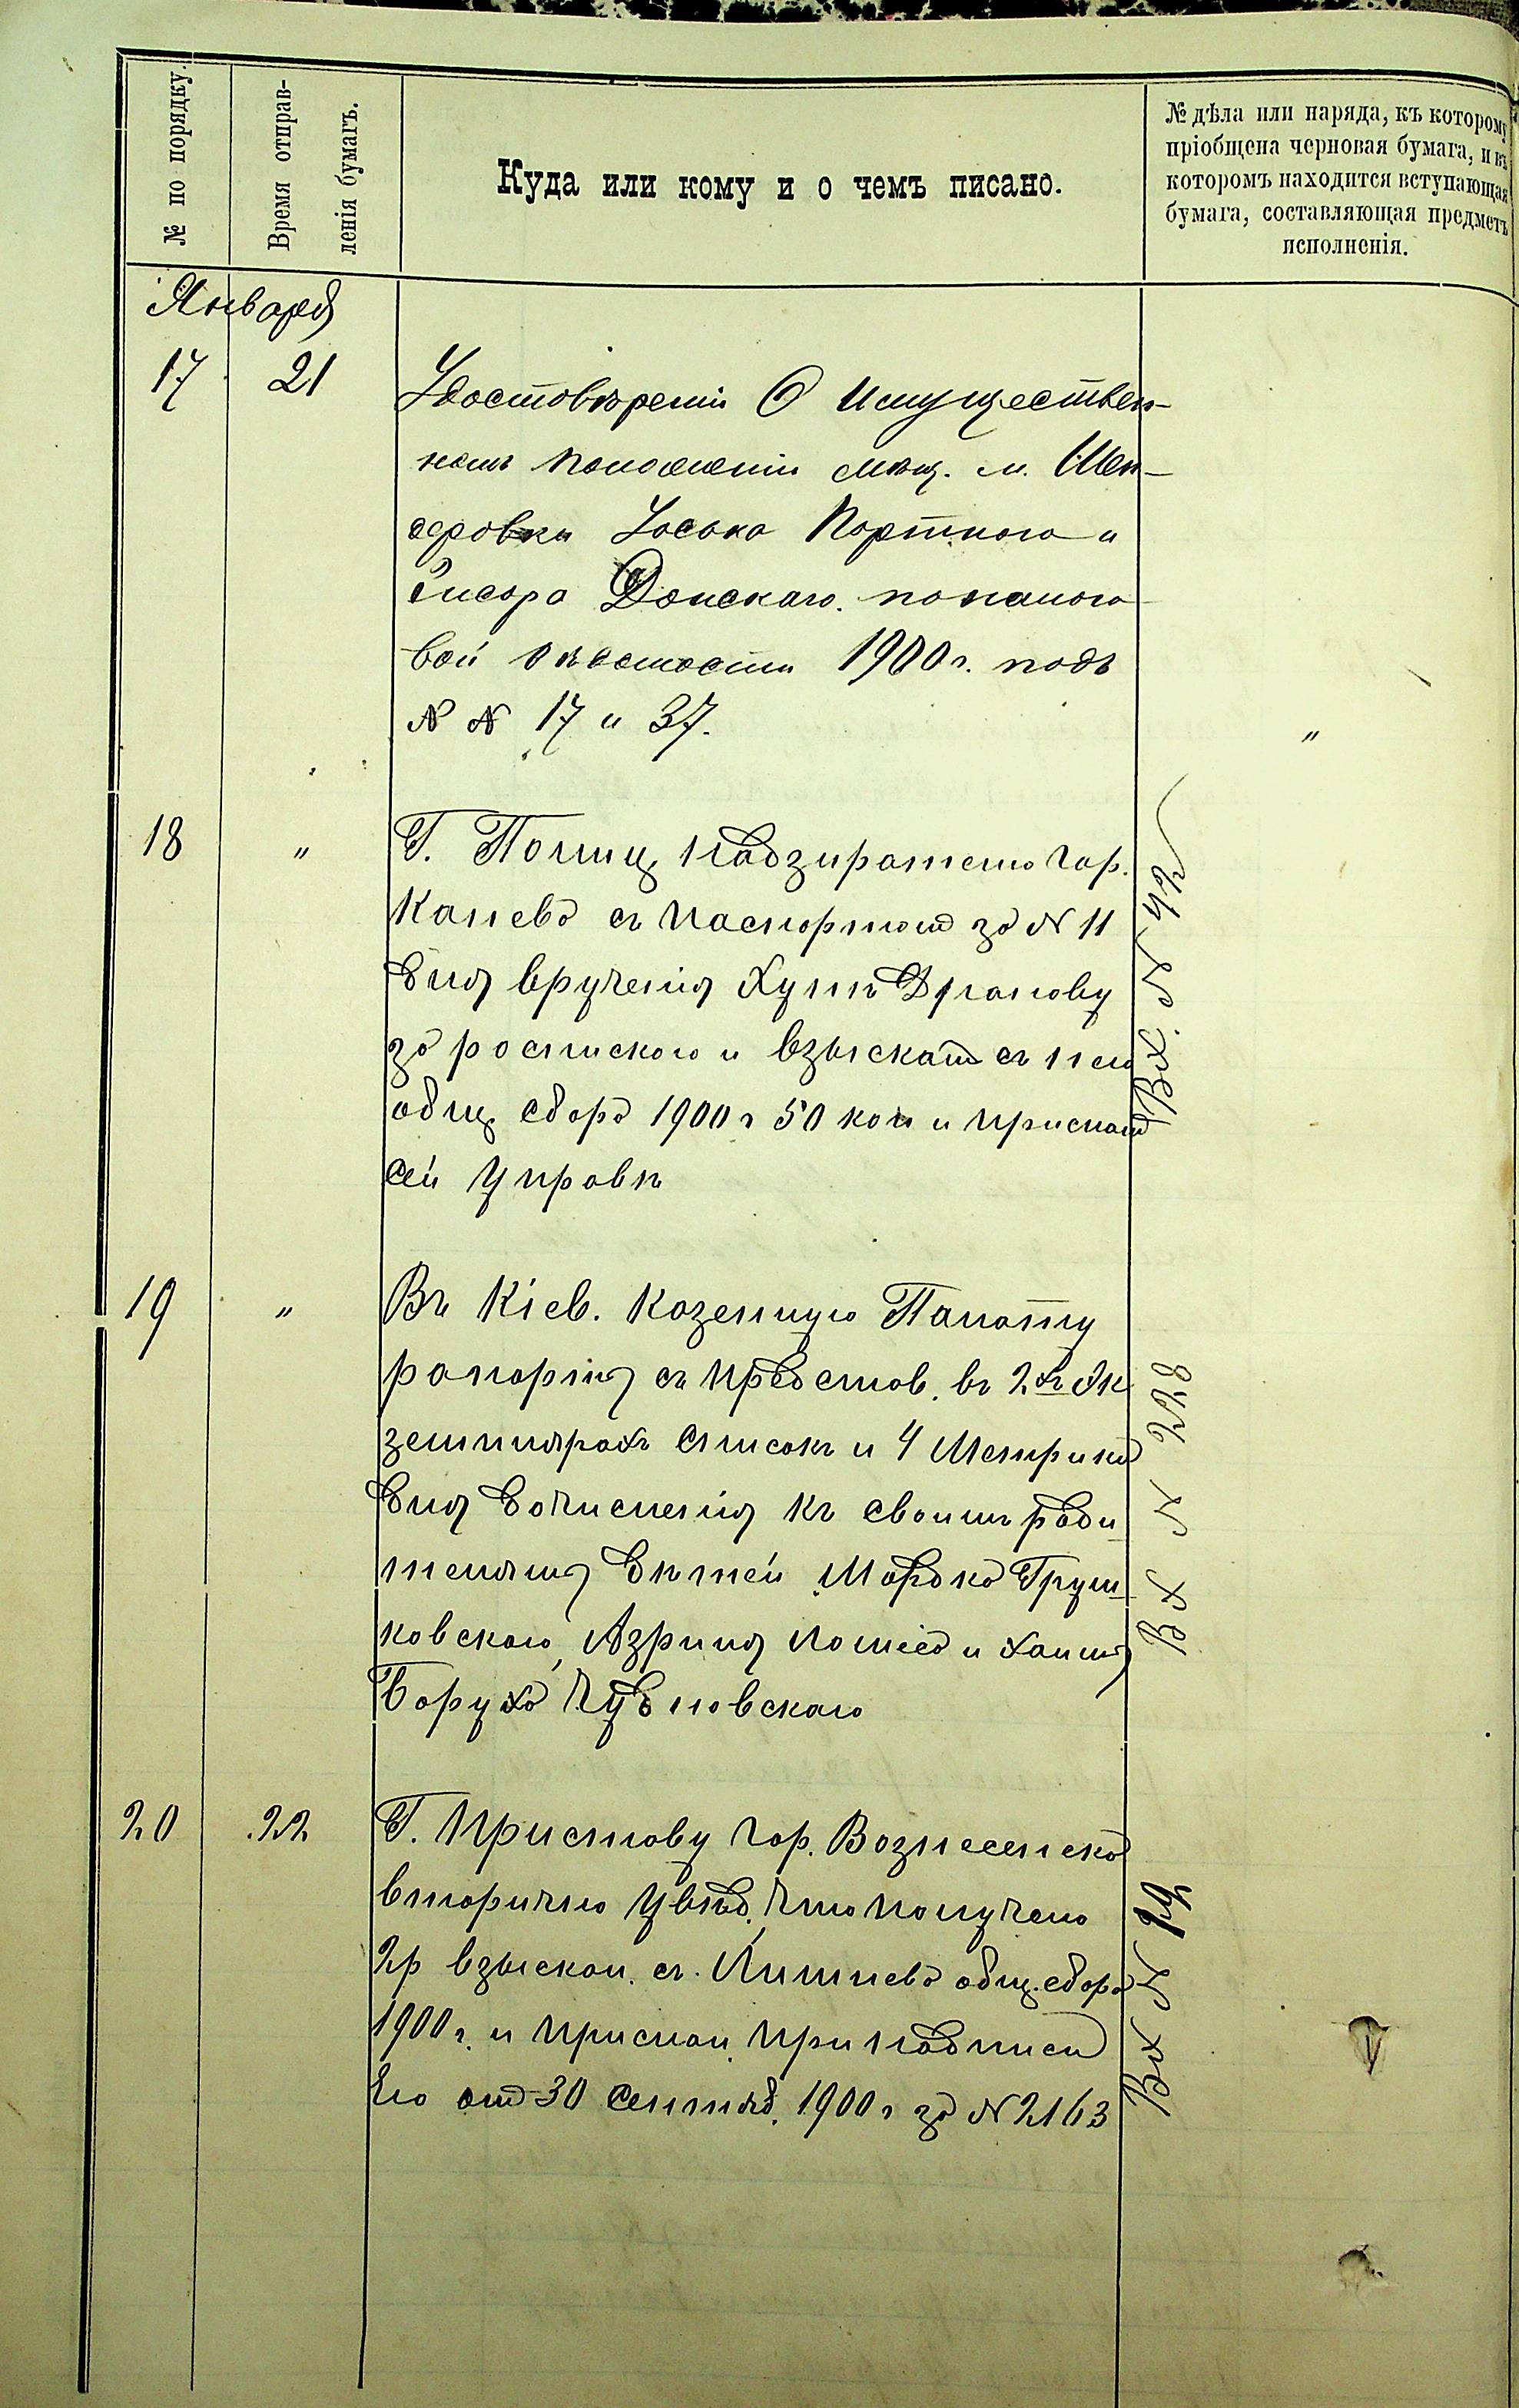 № по порядку.
Время отправ-
ленія бумагъ.
Куда или кому и о чемъ писано.
№ дѣла или наряда, къ которому
пріобщена черновая бумага, и въ
которомъ находится вступающая
бумага, составляющая предметъ
исполненія.
Января
17 21 Удостовѣреніи О Имуществен-
номъ положеніи мѣщ. м. Шен-
деровки Іоська Портного и
Донскаго. по налого
вой вѣдомости 1900 г. подъ
№ № 17 и 37.
"
18 " Г. Полиц Надзирателю Гор.
Канева съ паспортом за № 11
для врученія
за роспискою и взыскат съ него
общ сбора 1900 г 50 коп и прислат
Сей Управѣ
Вх. № 42
19 " Въ Кіев. Казенную Палату
рапортъ съ представ. въ 2-хъ Эк
земплярахъ Списокъ и 4 Метрики
для дочисленія къ своимъ роди
телямъ дѣтей Мордка Груш
ковскаго, Азриля и Хаима
Боруха Чудновскаго
Вх № 228
20 22 Г. Приставу Гор. Вознесенска
вторично увѣд. что получено
2 р взыскан. съ общ. сбора
1900 г. и прислан. при надписи
Его от 30 Сентяб. 1900 г за № 2163
Вх № 19